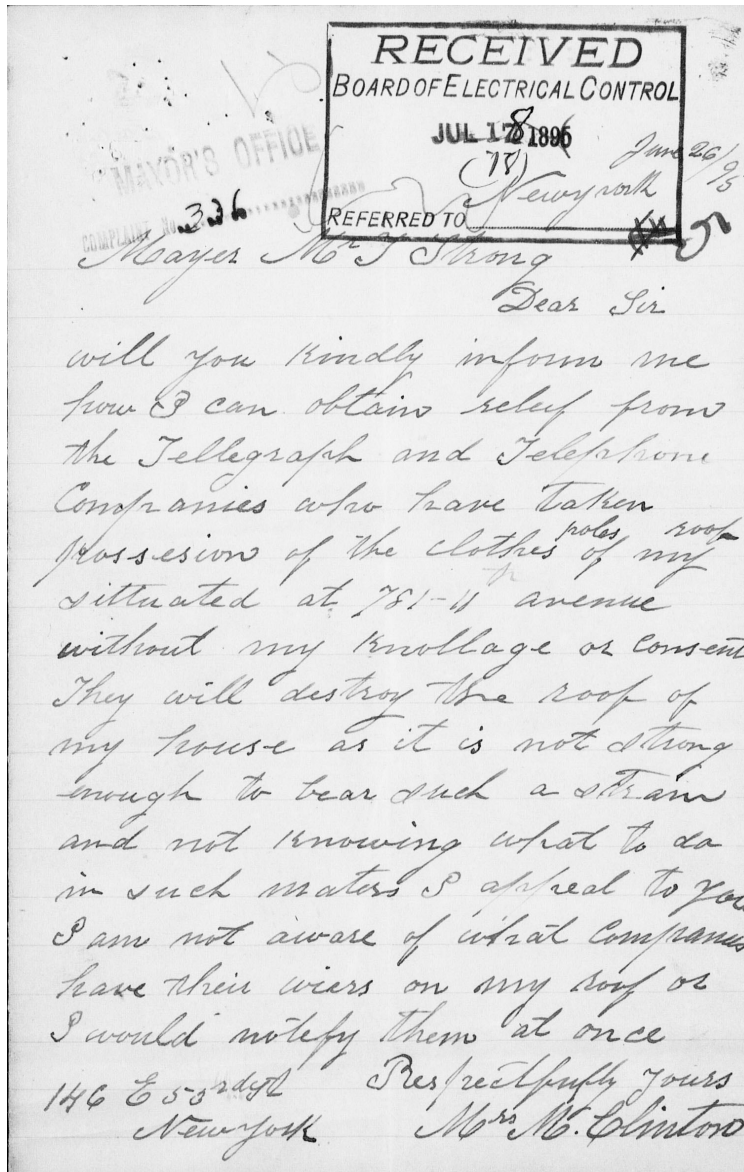 RECEIVED
BOARD OF ELECTRICAL CONTROL
JUL 18 1895
(78)
REFERRED TO
MAYOR'S OFFICE
COMPLAINT No. 336
June 26/95
Newyork
5
Mayer Mr Strong
Dear Sir
will you kindly inform me
how I can obtain releif from
the Tellegraph and Telephone
Companies who have taken
possesion of the clothes poles of my roof
sittuated at 781-11th avenue
without my knollage or consent
They will destroy the roof of
my house as it is not strong
enough to bear such a strain
and not knowing what to do
in such maters I appeal to you
I am not aware of what Companies
have their wiers on my roof or
I would notefy them at once
Respectfully yours
146 E 53rd st
New York
Mrs M. Clinton